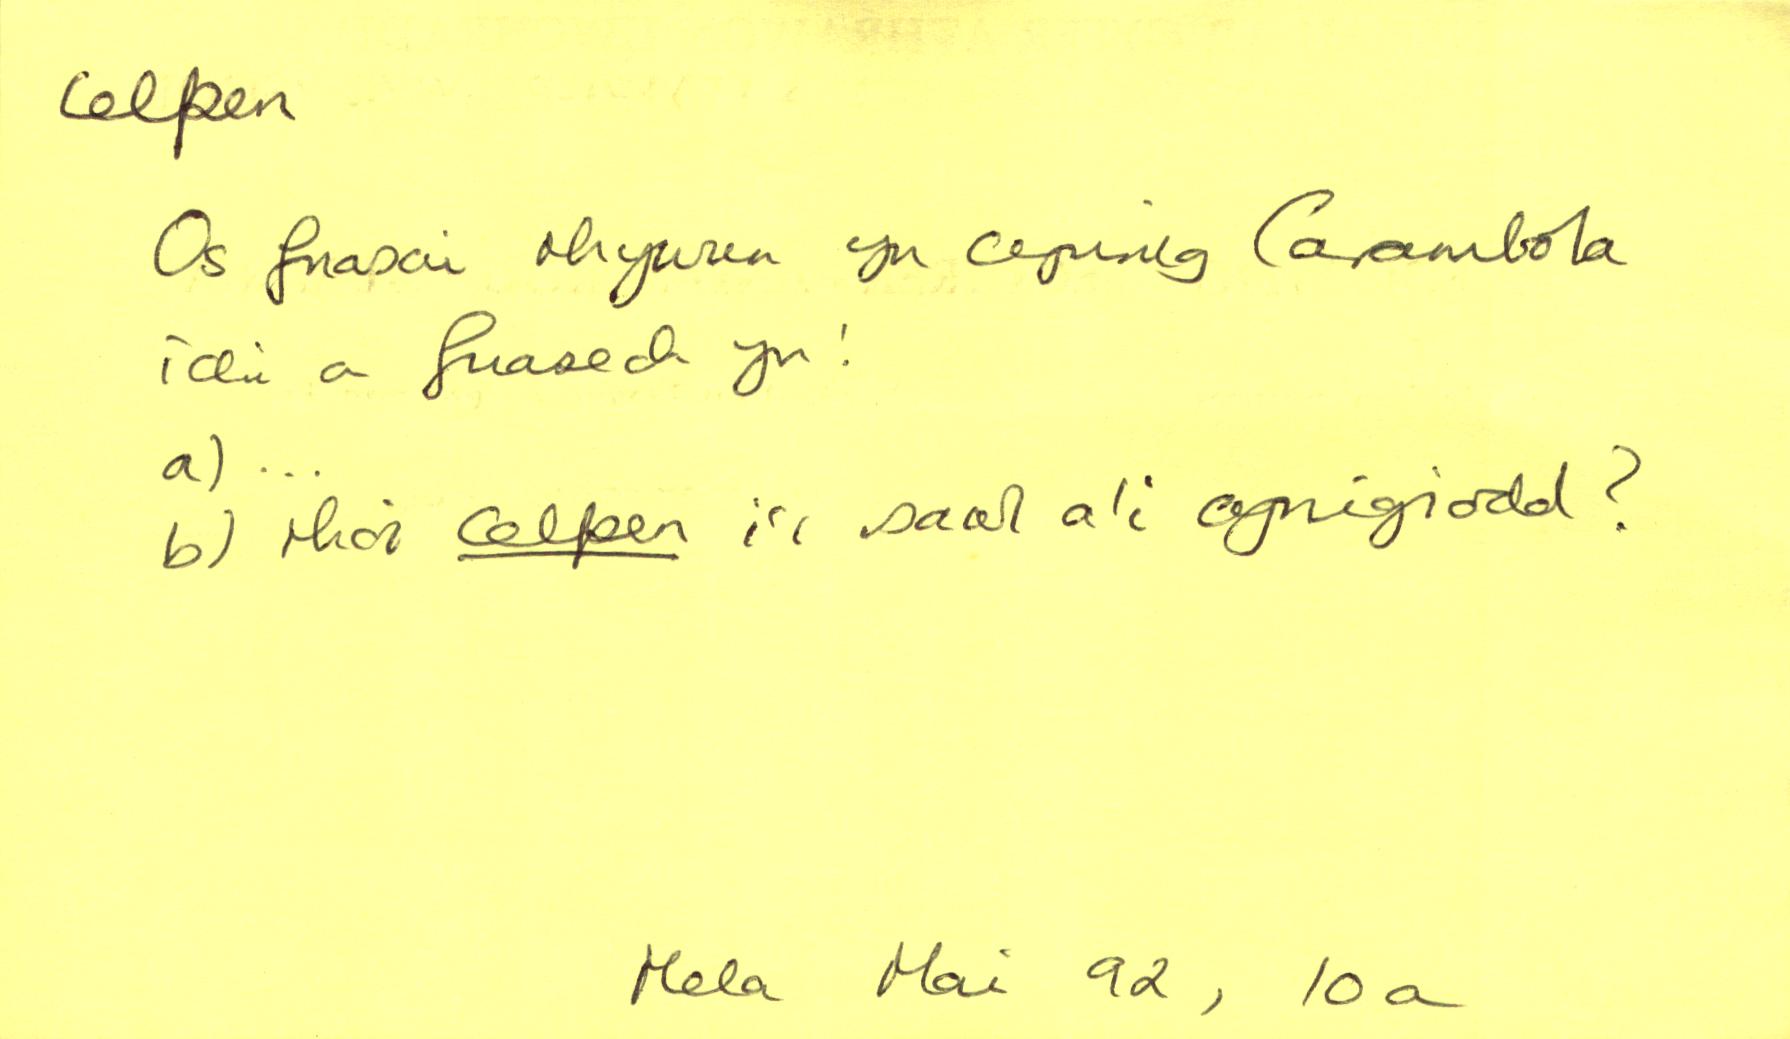 celpen
Os fuasai rhywun yn cynnig Carambola
i chi a fuasech yn:
a) ...
b) rhoi celpen i'r sawl a'i cynigiodd?
Mela Mai 92, 10a